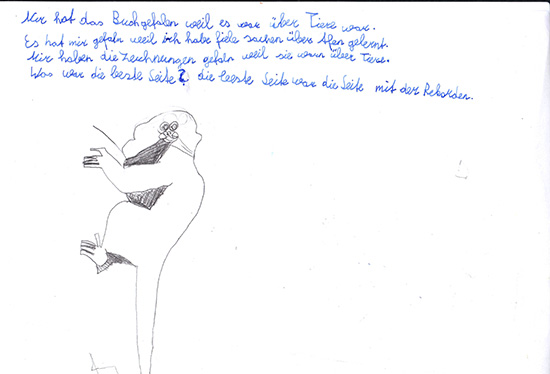 Mir hat das Buchgefalen weil es war über Tiere war.
Es hat mir gefaln weil ich habe fiele sachen über Afen gelernt.
Mir haben die Zeichnungen gefaln weil sie warn über Tiere.
Was war die beste Seite? die beste Seite war die Seite mit der Rekorden.